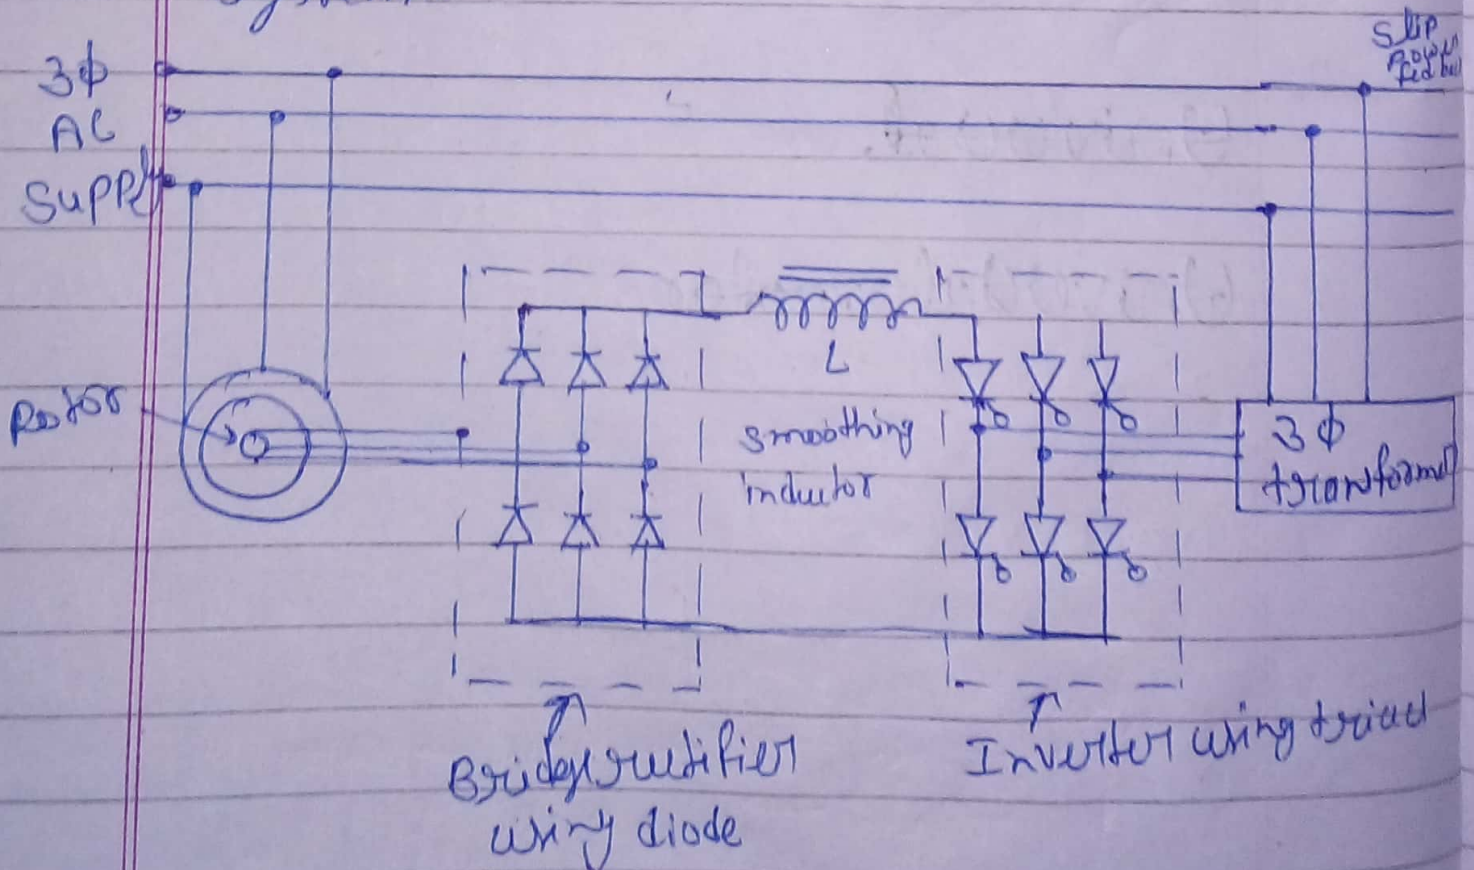 System
Slip
Power
fed back
3ф
AC
Supply
Rotor
L
smoothing
inductor
3ф
transformer
Bridge rectifier
using diode
Inverter using triad